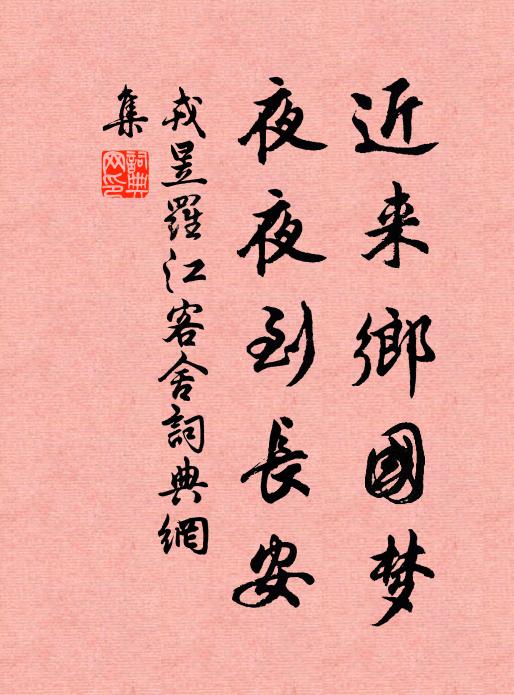 近来鄉國梦
夜夜到長安
戎昱羅江客舍詞典網
集
詞典网印